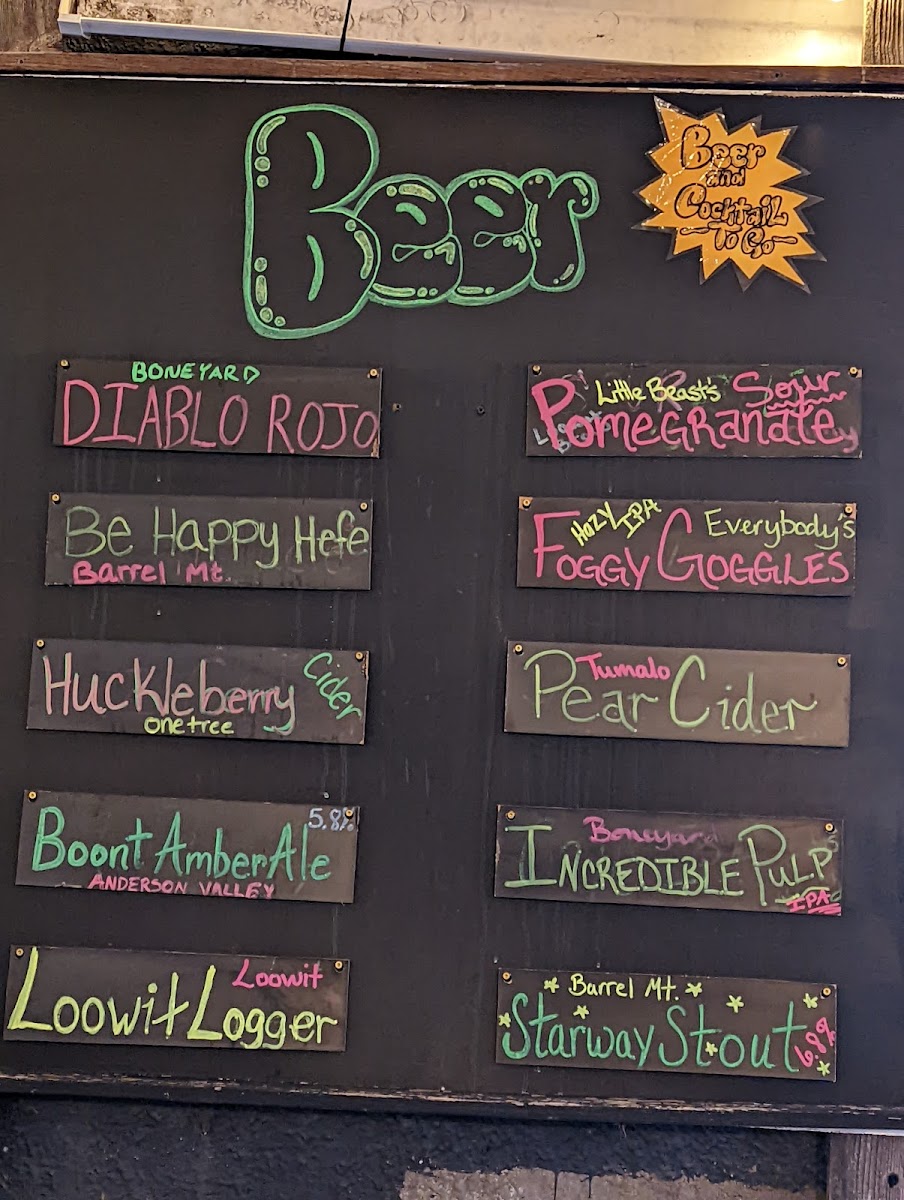 Beer
Beer
and
Cocktail
To Go
BONEYARD
DIABLO ROJO
Be Happy Hefe
Barrel Mt.
Huckleberry Cider
one tree
5.8%
Boont Amber Ale
ANDERSON VALLEY
Loowit
Loowit Logger
Little Beast's Sour
Pomegranate
Hazy IPA Everybody's
Foggy Goggles
Tumalo
Pear Cider
Boneyard
INCREDIBLE PULP
IPA
Barrel Mt.
Starway Stout 6.8%